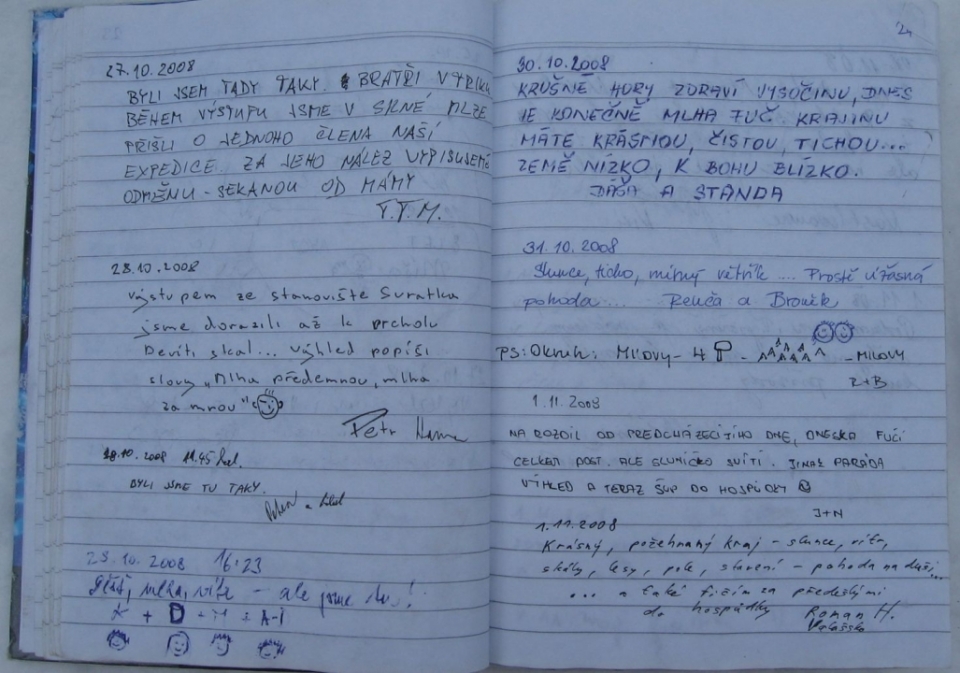 27.10.2008
BYLI JSEM TADY TAKY. BRATŘI
BĚHEM VÝSTUPU JSME V SILNÉ MLZE
PŘIŠLI O JEDNOHO ČLENA NAŠÍ
EXPEDICE. ZA JEHO NÁLEZ VYPISUJEME
ODMĚNU - SEKANOU OD MÁMY
T.T.M.
28.10.2008
výstupem ze stanoviště Svratka
jsme dorazili až k vrcholu
Devíti skal... výhled popíši
slovy "Mlha předemnou, mlha
za mnou"
Petr
28.10.2008 11.45 hod.
BYLI JSME TU TAKY.
29.10.2008 16:23
Déšť, mlha, vítr - ale jsme tu!
+ D +
24
30.10.2008
KRUŠNÉ HORY ZDRAVÍ VYSOČINU, DNES
JE KONEČNĚ MLHA FUČ. KRAJINU
MÁTE KRÁSNOU, ČISTOU, TICHOU...
ZEMĚ NÍZKO, K BOHU BLÍZKO.
DÁŠA A STANDA
31.10.2008
Slunce, ticho, mírný větřík .... Prostě úžasná
pohoda... Renča a Brouček
PS: Okruh: MILOVY - 4 - - MILOVY
R+B
1.11.2008
NA ROZDÍL OD PŘEDCHÁZEJÍCÍHO DNE, DNESKA FUČÍ
CELKEM DOST. ALE SLUNÍČKO SVÍTÍ. JINAK PARÁDA
VÝHLED A TERAZ ŠUP DO HOSPŮDKY
J+N
1.11.2008
Krásný, požehnaný kraj - slunce, vítr,
skály, lesy, pole, stavení - pohoda na duši...
... a také fičím za předešlými
do hospůdky Roman H.
Valašsko